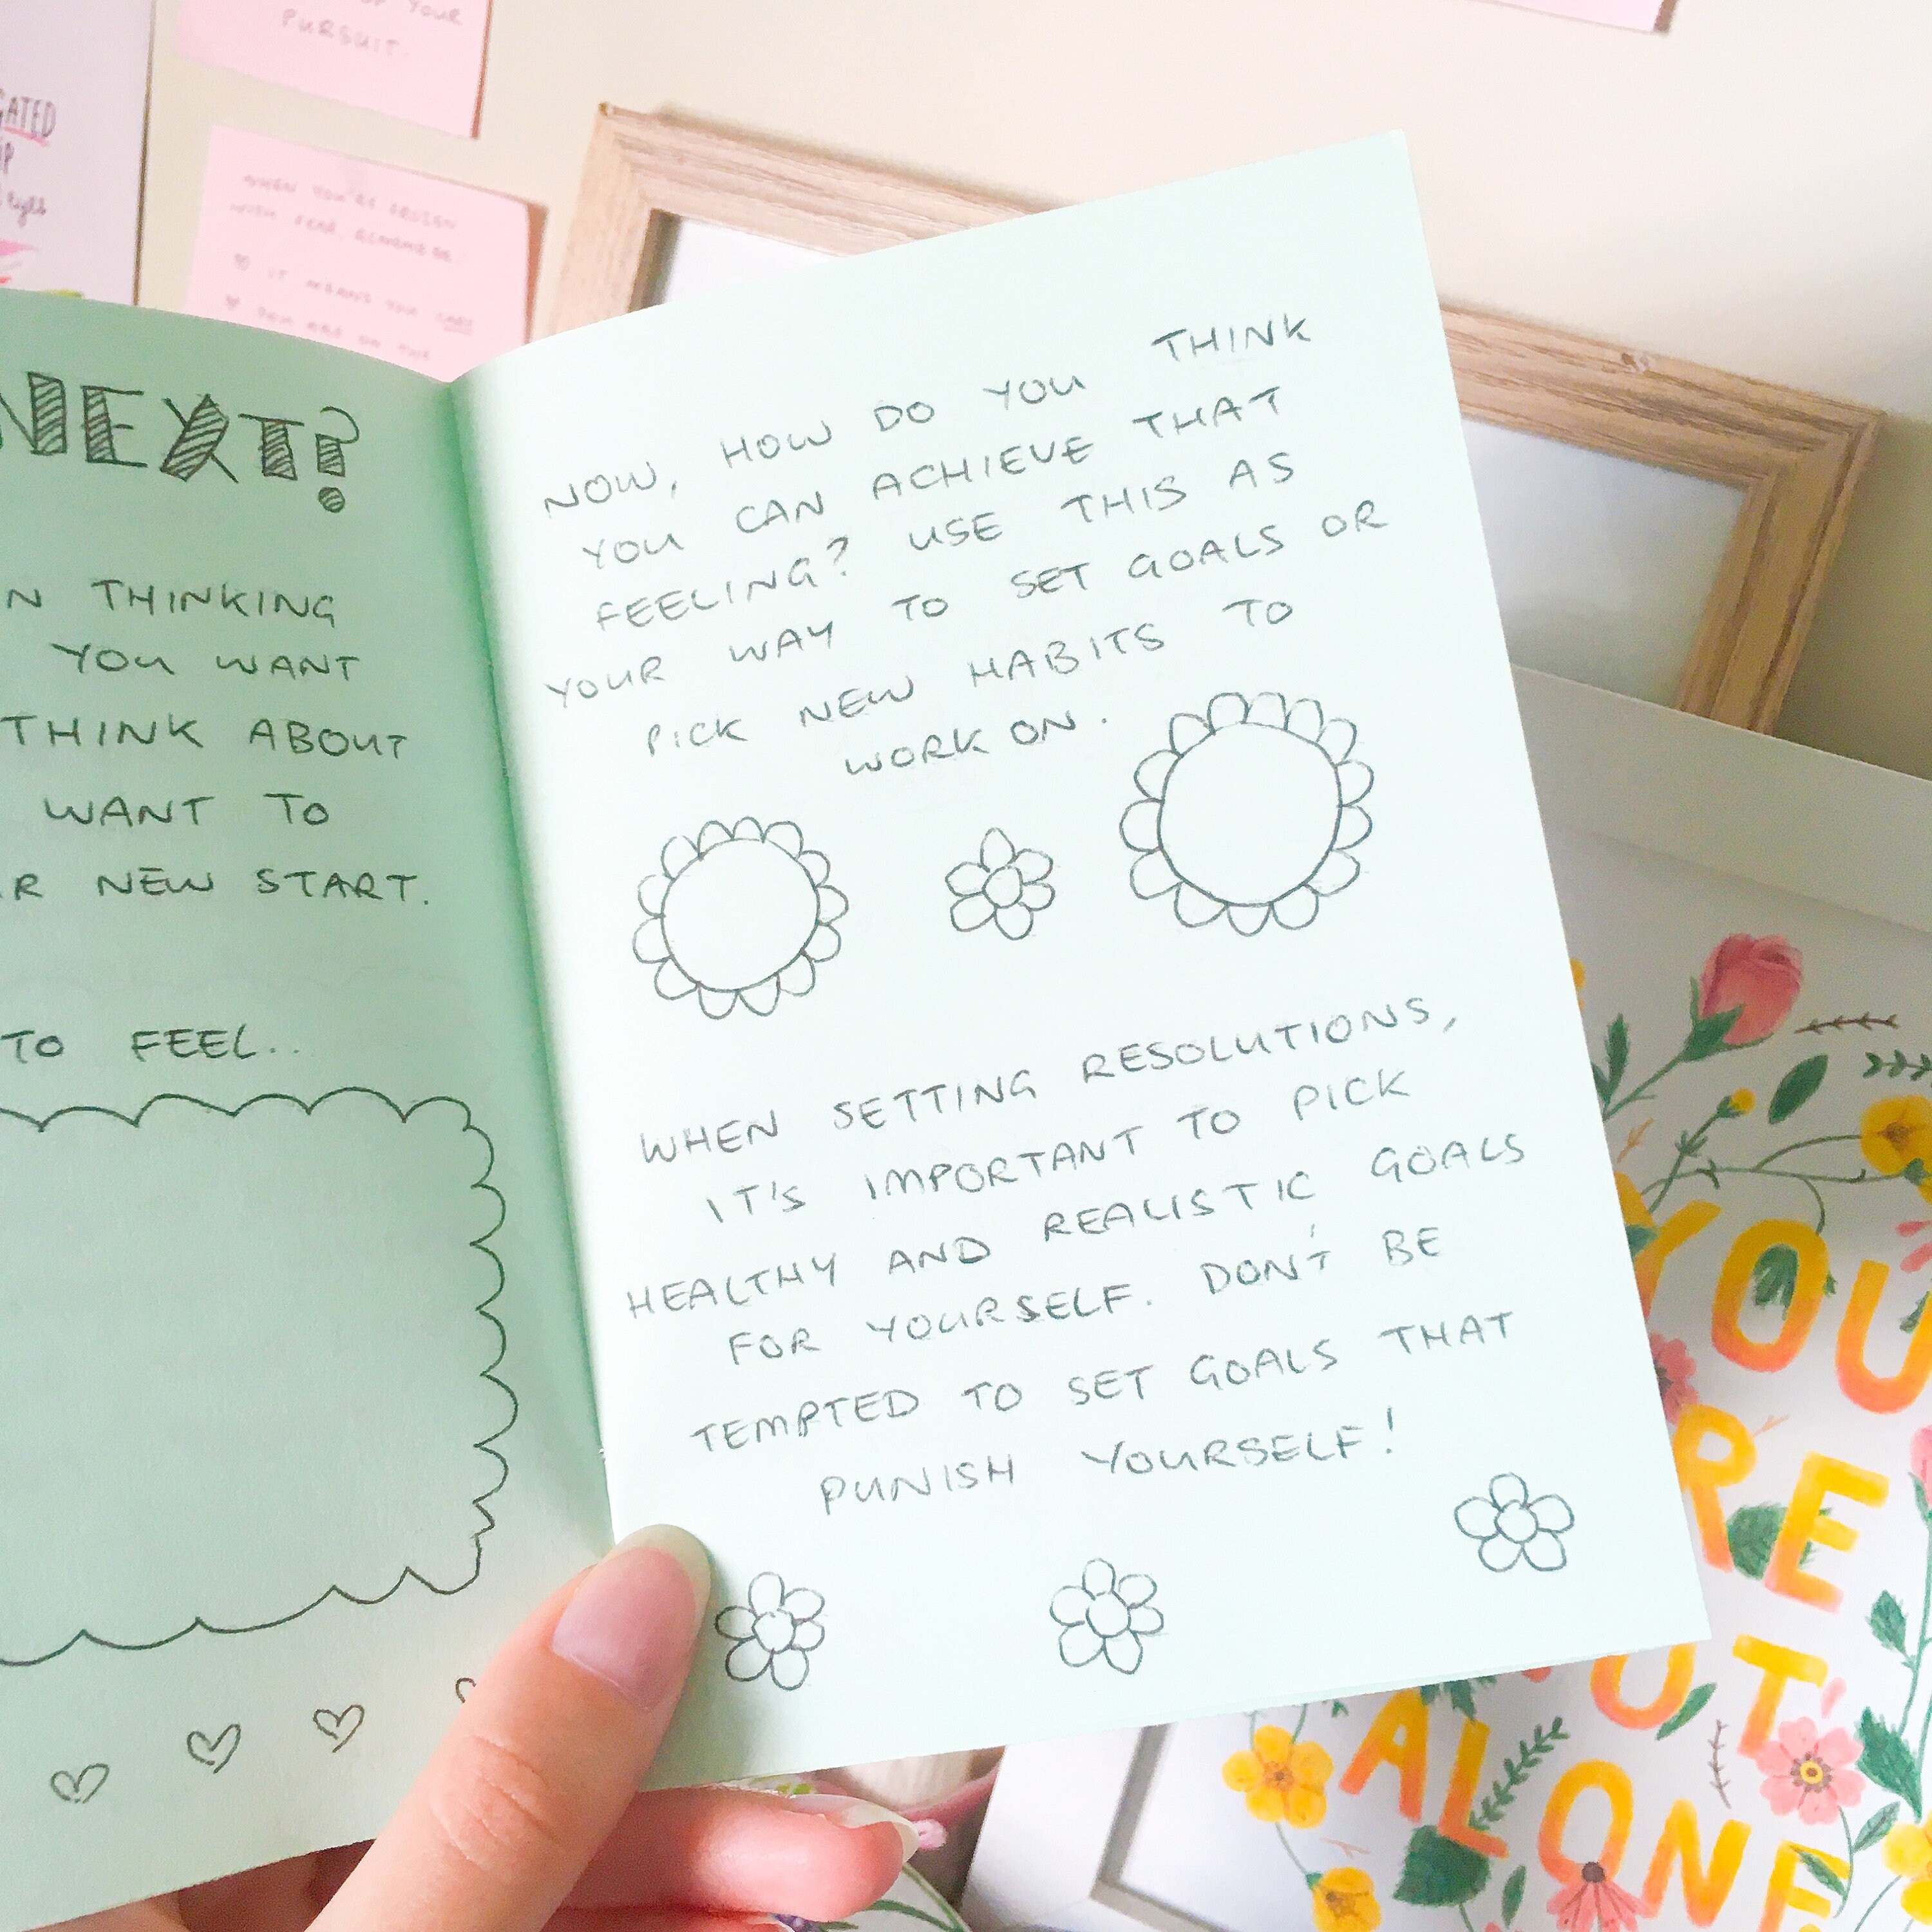 YOUR
PURSUIT.
WHEN YOU'RE FROZEN
WITH FEAR, REMEMBER:
IT MEANS YOU CARE
YOU ARE ON THE
NEXT?
THINKING
YOU WANT
THINK ABOUT
WANT TO
NEW START.
TO FEEL...
NOW, HOW DO YOU THINK
YOU CAN ACHIEVE THAT
FEELING? USE THIS AS
YOUR WAY TO SET GOALS OR
PICK NEW HABITS TO
WORK ON.
WHEN SETTING RESOLUTIONS,
IT'S IMPORTANT TO PICK
HEALTHY AND REALISTIC GOALS
FOR YOURSELF. DON'T BE
TEMPTED TO SET GOALS THAT
PUNISH YOURSELF!
YOU
ARE
NOT
ALONE